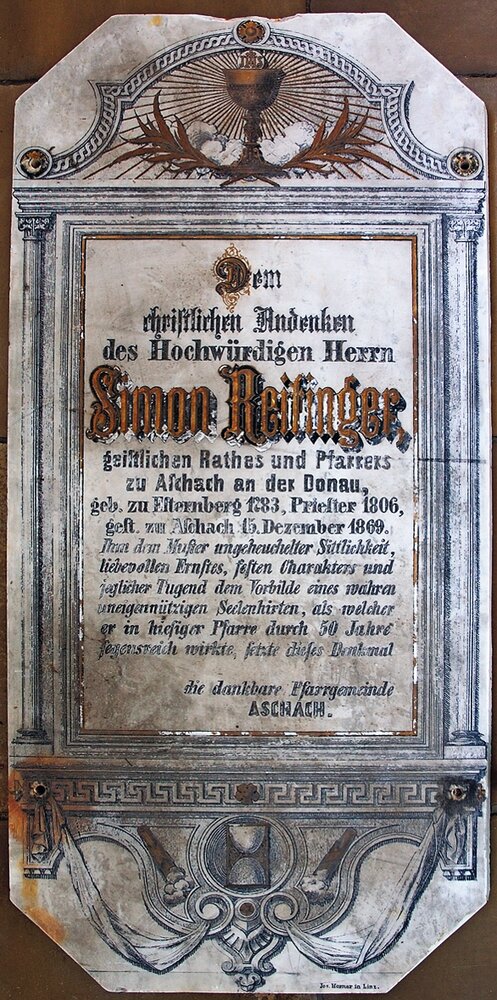 IHS
Dem
christlichen Andenken
des Hochwürdigen Herrn
Simon Reisinger,
geistlichen Rathes und Pfarrers
zu Aschach an der Donau,
geb. zu Esternberg 1783, Priester 1806,
gest. zu Aschach 15. Dezember 1869.
Ihm dem Muster ungeheuchelter Sittlichkeit,
liebevollen Ernstes, festen Charakters und
jeglicher Tugend dem Vorbilde eines wahren
uneigennützigen Seelenhirten, als welcher
er in hiesiger Pfarre durch 50 Jahre
segensreich wirkte, setzte dieses Denkmal
die dankbare Pfarrgemeinde
ASCHACH.
Jos. Hafner in Linz.